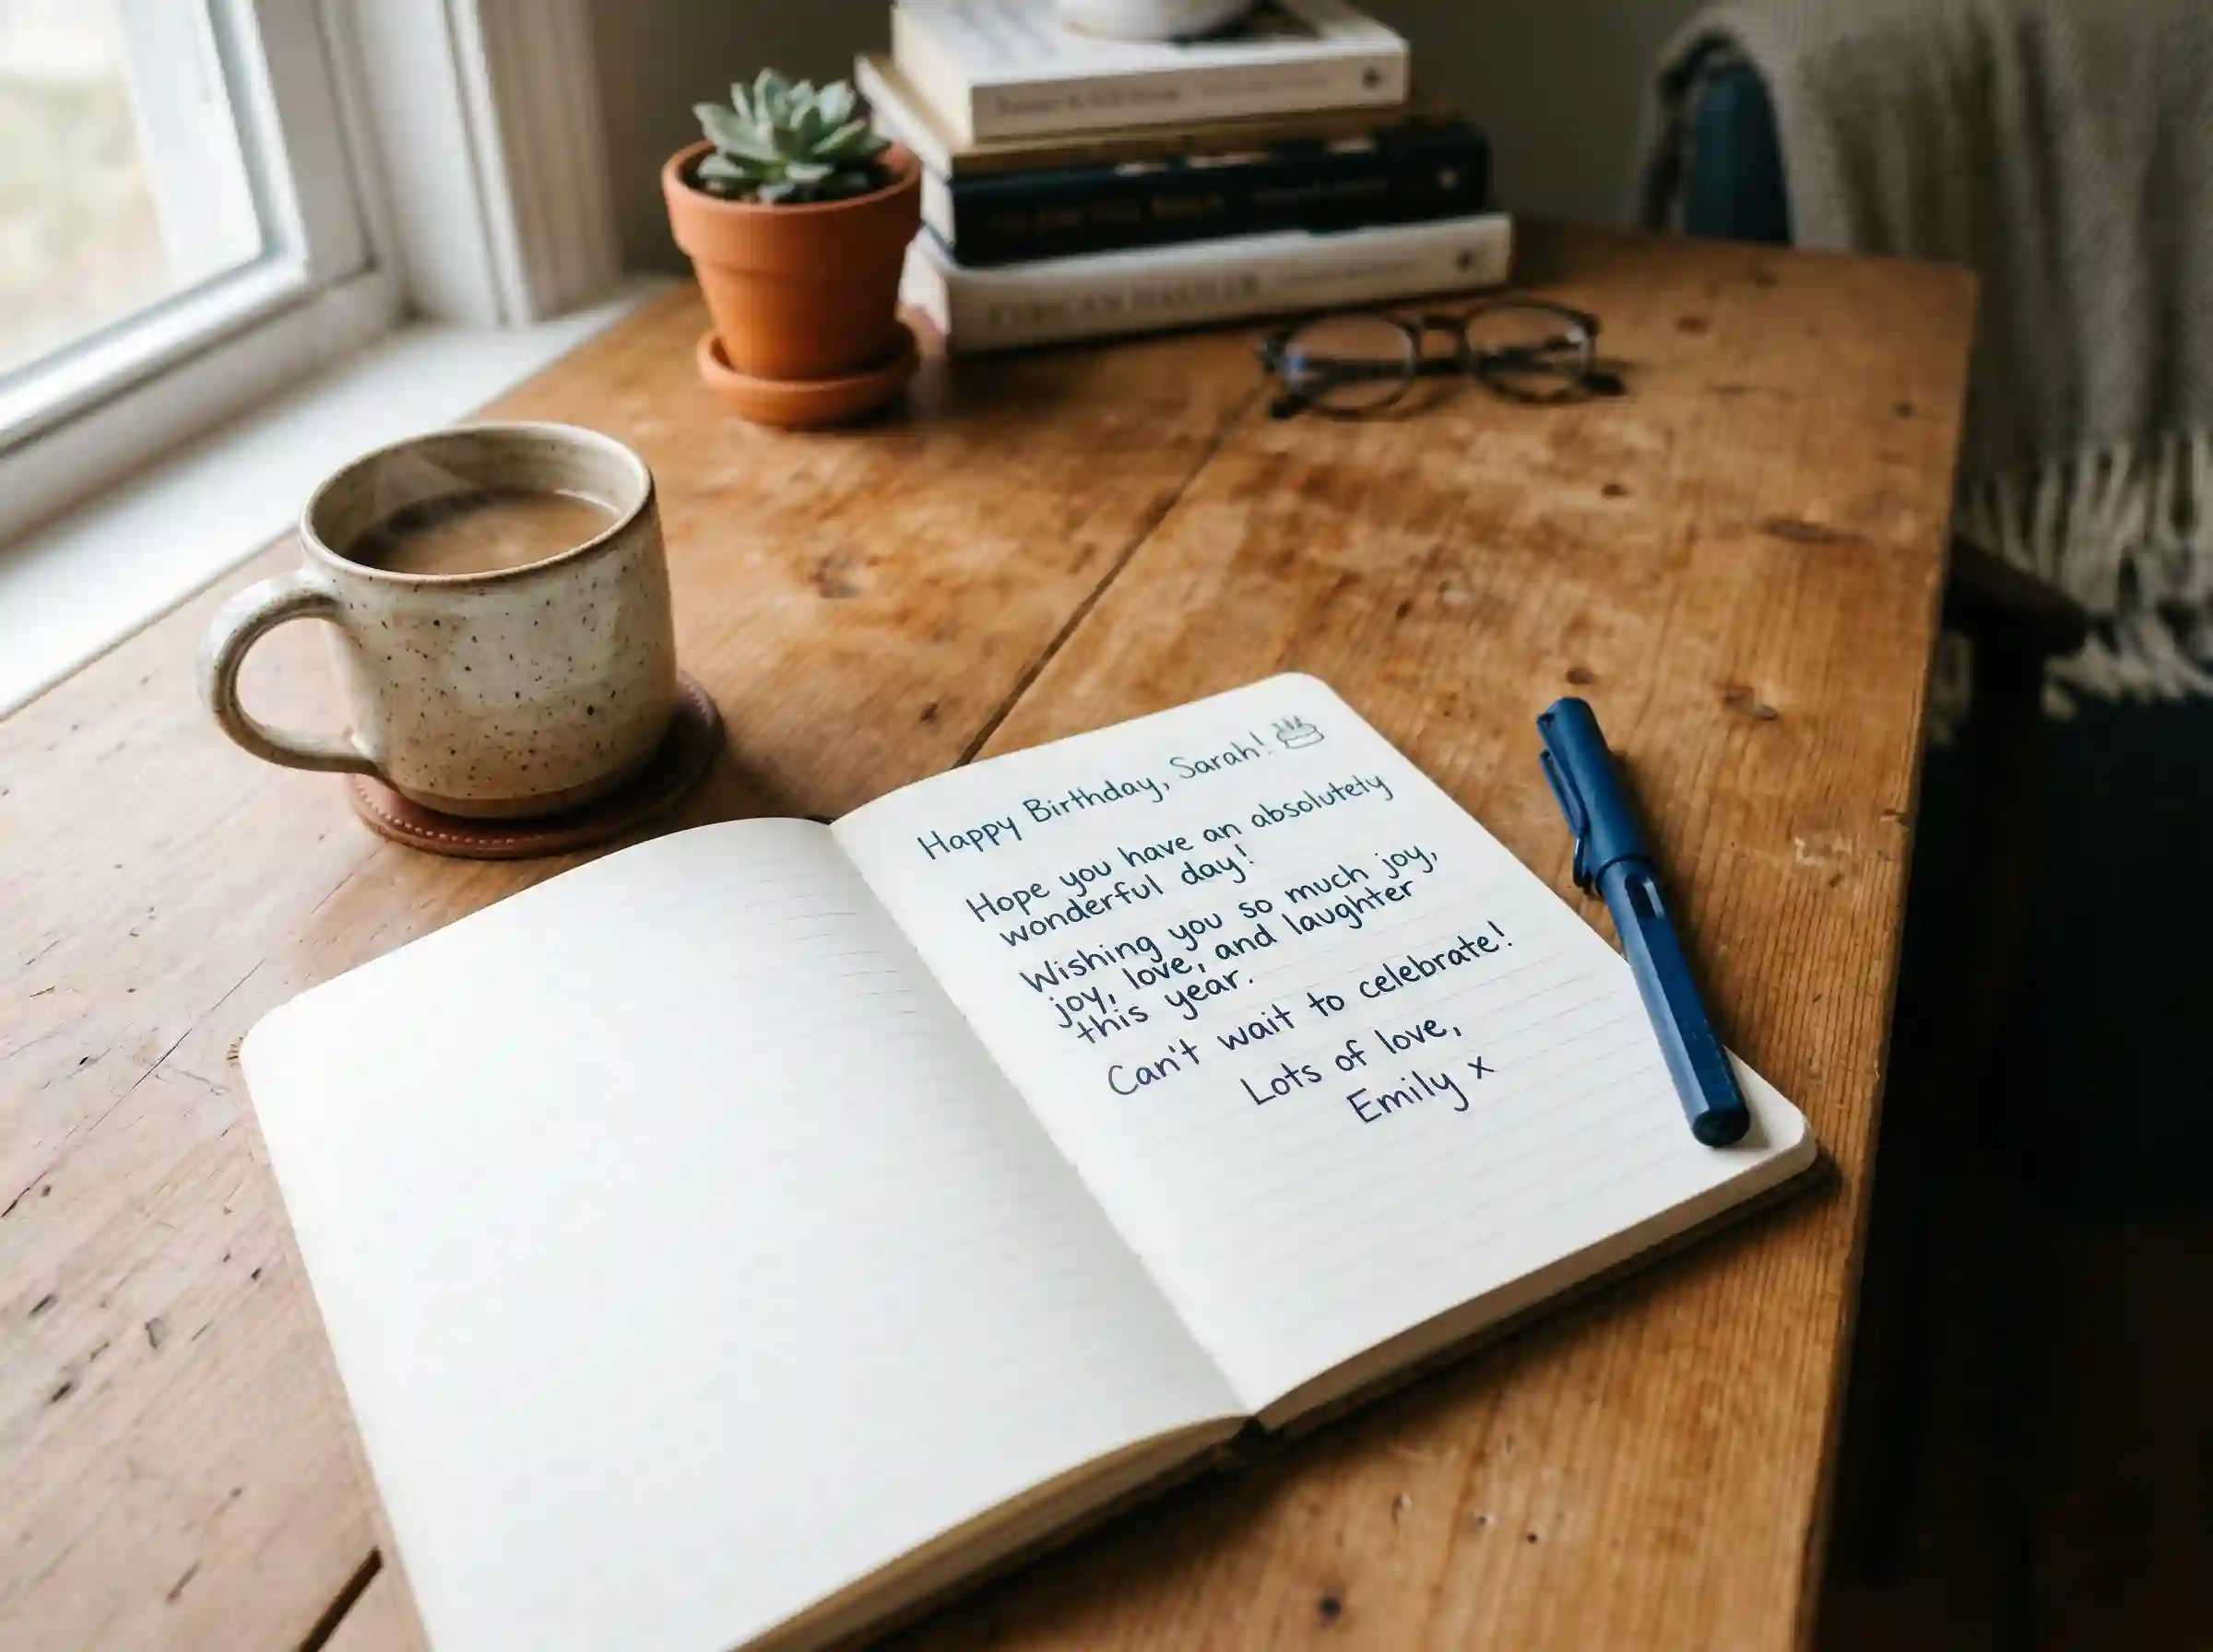 Happy Birthday, Sarah!
Hope you have an absolutely
wonderful day!
Wishing you so much joy,
joy, love, and laughter
this year.
Can't wait to celebrate!
Lots of love,
Emily x